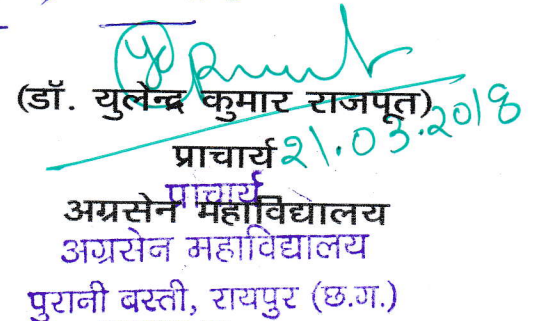 (डॉ. युलेन्द्र कुमार राजपूत)
प्राचार्य 21.03.2018
प्राचार्य
अग्रसेन महाविद्यालय
अग्रसेन महाविद्यालय
पुरानी बस्ती, रायपुर (छ.ग.)